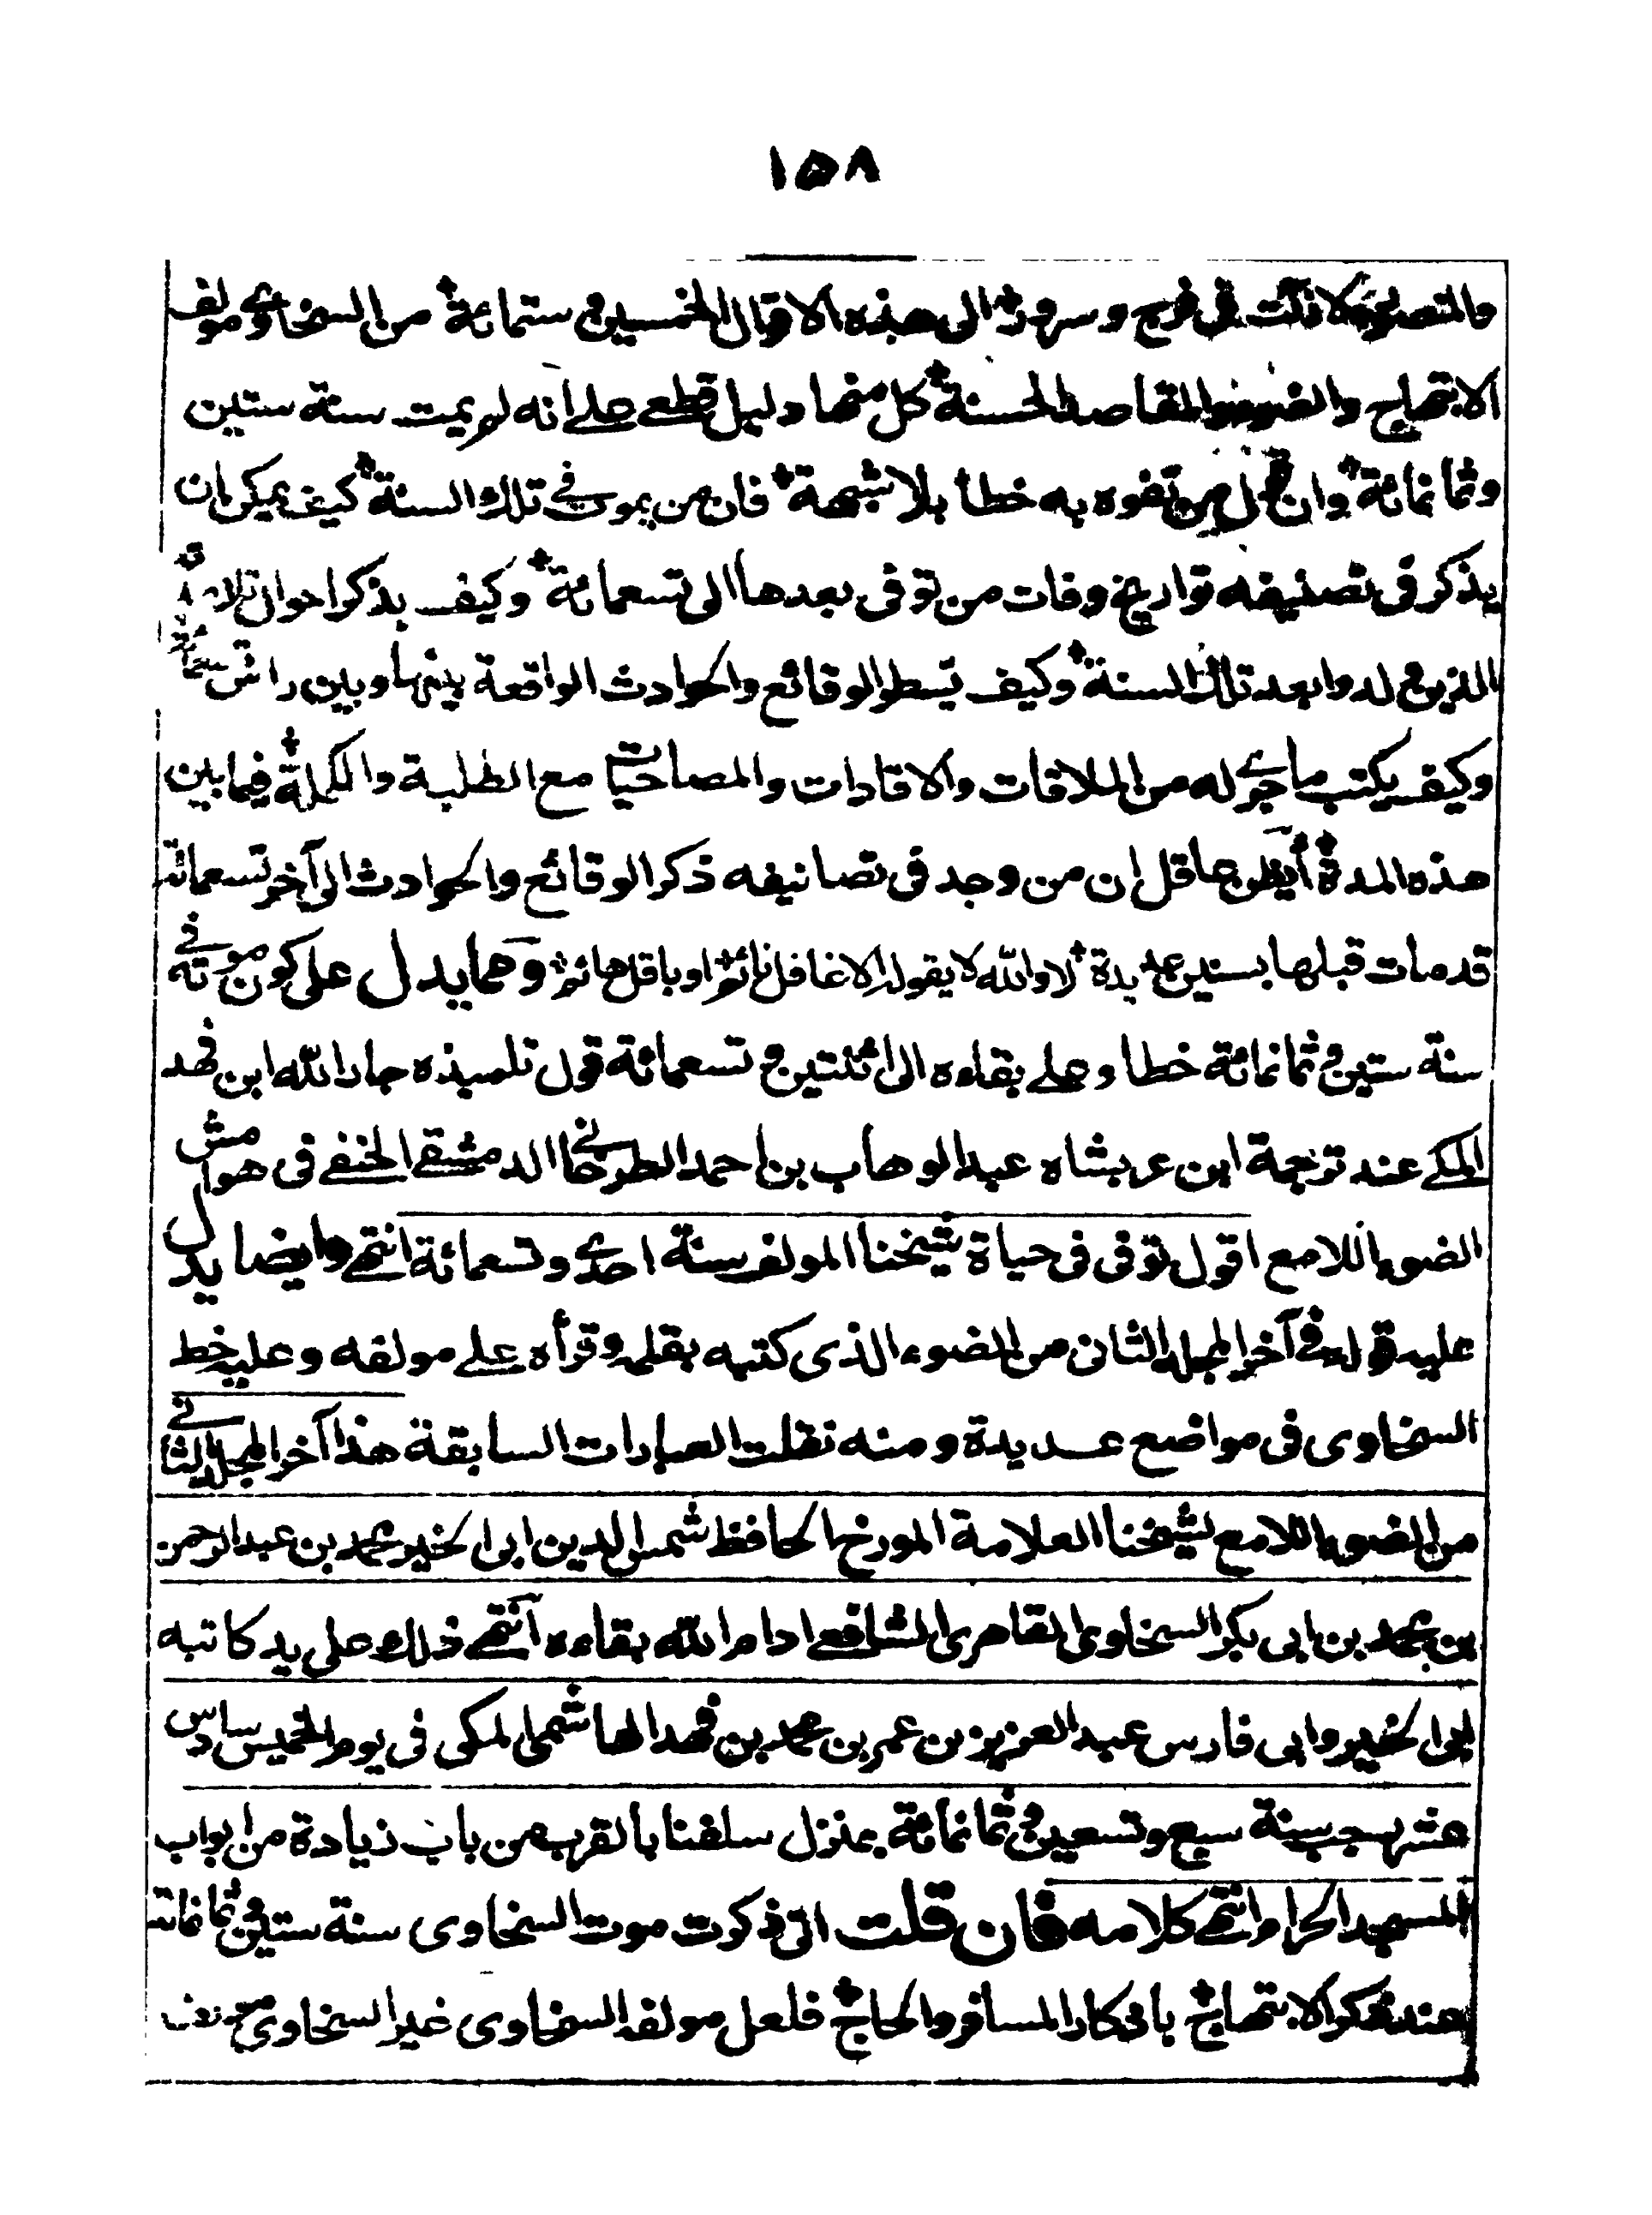 ١٥٨
لازلت في فرح وسرور الى هذه الاقوال الخمسين وستمائة من السخاوي مولف
الابتهاج والضوء والمقاصد الحسنة كل منها دليل قطعي على انه لم يمت سنة ستين
وثمانمائة وان قول من تفوه به خطأ بلا شبهة فان من يموت في تلك السنة كيف يمكن ان
يذكر في تصنيفه تواريخ وفات من توفى بعدها الى تسعمائة وكيف يذكر احوال تلامذته
الذين ولدوا بعد تلك السنة وكيف يبسط الوقائع والحوادث الواقعة بينها وبين راس تسعمائة
وكيف يكتب ما جرى له من الملاقات والافادات والمصاحبات مع الطلبة والكملة فيما بين
هذه المدة أيظن عاقل ان من وجد في تصانيفه ذكر الوقائع والحوادث الى آخر تسعمائة
قد مات قبلها بسنين عديدة لا والله لا يقوله الا غافل نائم او باقل هائم ومما يدل على كون موته في
سنة ستين وثمانمائة خطا وعلى بقاءه الى اثنتين وتسعمائة قول تلميذه جار الله ابن فهد
المكي عند ترجمة ابن عربشاه عبد الوهاب بن احمد الطرخاني الدمشقي الحنفي في هوامش
الضوء اللامع اقول توفى في حياة شيخنا المولف سنة احدى وتسعمائة انتهى وايضا يدل
عليه قوله في آخر المجلد الثاني من الضوء الذي كتبه بقلمه وقرأه على مولفه وعليه خط
السخاوى في مواضع عديدة ومنه نقلت العبارات السابقة هذا آخر المجلد الثاني
من الضوء اللامع لشيخنا العلامة المورخ الحافظ شمس الدين ابي الخير محمد بن عبد الرحمن
بن محمد بن ابي بكر السخاوى القاهرى الشافعي ادام الله بقاءه آنتهى ذلك على يد كاتبه
ابي الخير وابي فارس عبد العزيز بن عمر بن محمد بن فهد الهاشمي المكي في يوم الخميس سادس
عشر رجب سنة سبع وتسعين وثمانمائة بمنزل سلفنا بالقرب من باب زيادة من ابواب
المسجد الحرام انتهى كلامه فان قلت اني ذكرت موت السخاوى سنة ستين وثمانمائة
عند ذكر الابتهاج باذكار المسافر والحاج فلعل مولفه السخاوى غير السخاوى